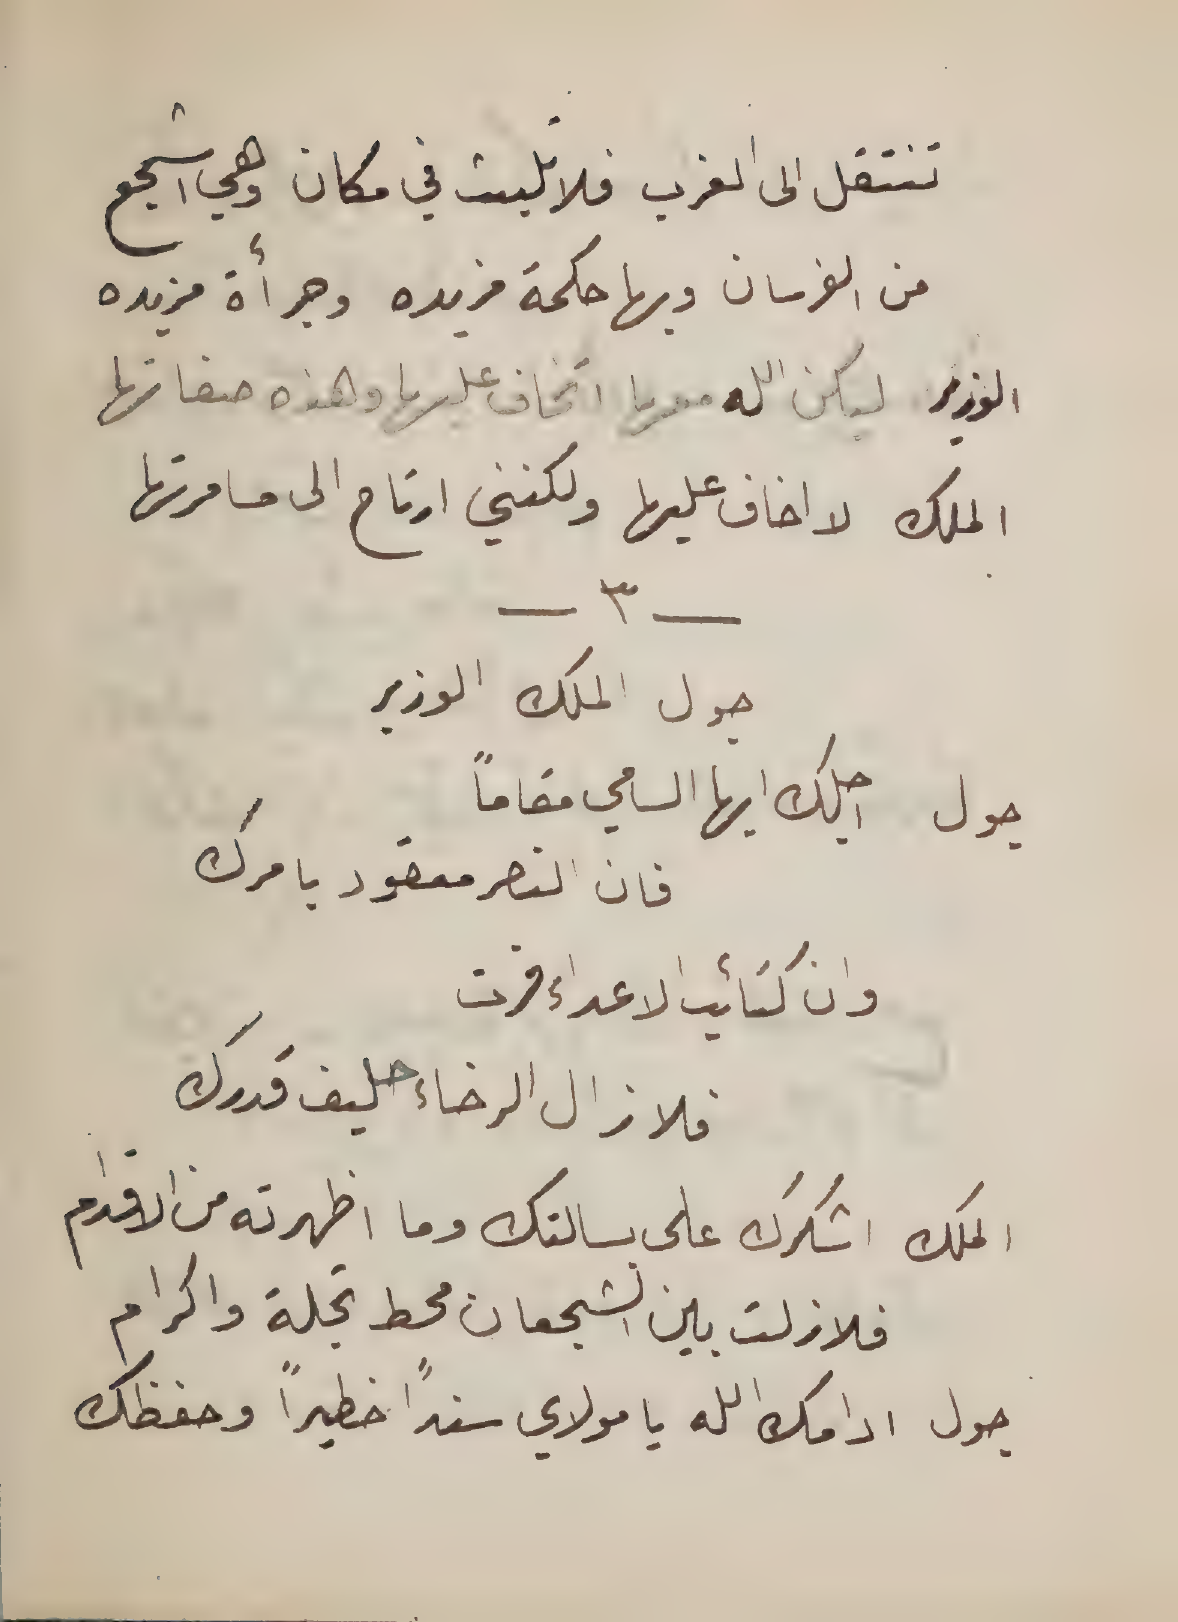 تنتقل الى الغرب فلا تلبث في مكان وهي اشجع
من الفرسان وبها حكمة فريده وجرأة مزيده
الوزير ليكن الله معها اتخاف عليها وهذه صفاتها
الملك لا اخاف عليها ولكنني ارتاح الى مسامرتها
— ٣ —
جول الملك الوزير
جول اجلك ايها السامي مقاماً
فان النصر معقود بامرك
وان كتائب الاعداء فرت
فلا زال الرخاء حليف قدرك
الملك اشكرك على بسالتك وما اظهرته من الاقدام
فلا زلت بين الشجعان محط تجلة واكرام
جول ادامك الله يا مولاي سنداً خطيراً وحفظك